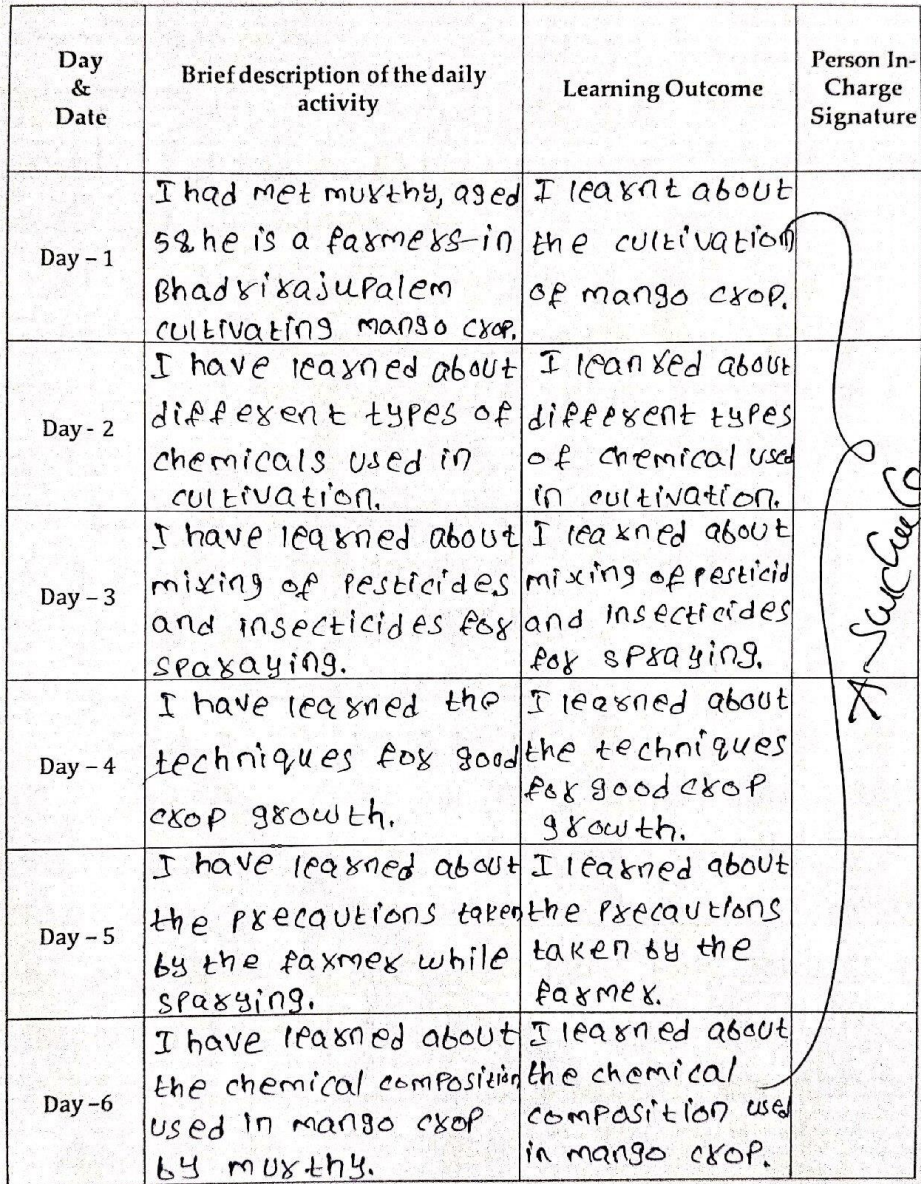 Day
&
Date
Brief description of the daily
activity
Learning Outcome
Person In-
Charge
Signature
Day – 1
I had met murthy, aged
58 he is a farmers in
Bhadrirajupalem
cultivating mango crop.
I learnt about
the cultivation
of mango crop.
Day - 2
I have learned about
different types of
chemicals used in
cultivation.
I leanred about
different types
of chemical used
in cultivation.
Day – 3
I have learned about
mixing of pesticides
and insecticides for
sparaying.
I learned about
mixing of pesticid
and insecticides
for spraying.
Day – 4
I have learned the
techniques for good
crop growth.
I learned about
the techniques
for good crop
growth.
Day – 5
I have learned about
the precautions taken
by the farmer while
sparying.
I learned about
the precautions
taken by the
farmer.
Day –6
I have learned about
the chemical composition
used in mango crop
by murthy.
I learned about
the chemical
composition used
in mango crop.